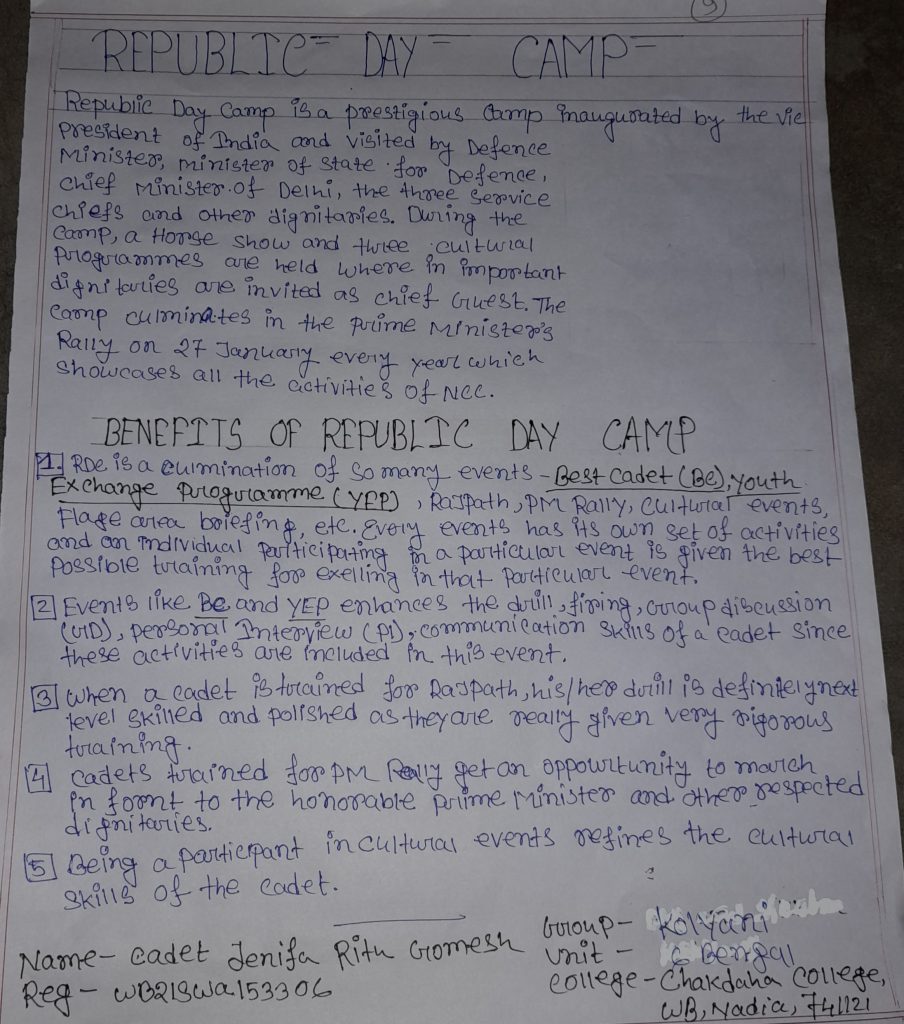 9
REPUBLIC DAY CAMP
Republic Day Camp is a prestigious Camp inaugurated by the vie
president of India and visited by Defence
Minister, minister of state for Defence,
Chief Minister of Delhi, the three Service
chiefs and other dignitaries. During the
Camp, a Horse show and three cultural
Programmes are held where in important
dignitaries are invited as chief Guest. The
Camp culminates in the prime Minister's
Rally on 27 January every year which
showcases all the activities of NCC.
BENEFITS OF REPUBLIC DAY CAMP
1. RDC is a culmination of so many events - Best Cadet (BC), Youth
Exchange Programme (YEP), Rajpath, PM Rally, Cultural events,
Flage area briefing, etc. Every events has its own set of activities
and an individual participating in a particular event is given the best
possible training for exelling in that particular event.
2 Events like BC and YEP enhances the drill, firing, Group discussion
(GD), personal Interview (PI), communication skills of a cadet since
these activities are included in this event.
3 When a cadet is trained for Rajpath, his/her drill is definitely next
level skilled and polished as they are really given very rigorous
training.
4 Cadets trained for PM Rally get an oppourtunity to march
in fornt to the honorable prime Minister and other respected
dignitaries.
5 Being a participant in cultural events refines the cultural
skills of the cadet.
Name - Cadet Jenifa Ritu Gomesh
Reg - WB21SWA153306
Group - Kolyani
Unit - 6 Bengal
College - Chakdaha College,
WB, Nadia, 741121